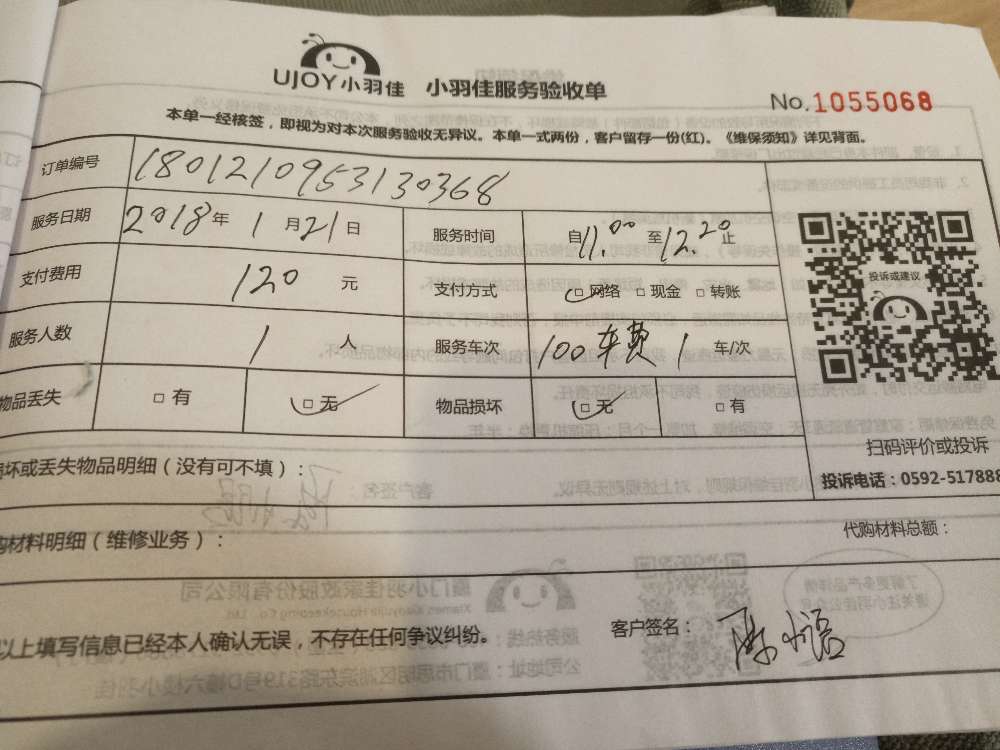 UJOY小羽佳 小羽佳服务验收单
No.1055068
本单一经核签，即视为对本次服务验收无异议。本单一式两份，客户留存一份(红)。《维保须知》详见背面。
订单编号 1801210953130368
服务日期 2018年 1月21日 服务时间 自11.00至12.20止
支付费用 120 元 支付方式 □网络 □现金 □转账
投诉或建议
服务人数 1 人 服务车次 100车费 1 车/次
物品丢失 □有 □无 物品损坏 □无 □有
扫码评价或投诉
投诉电话：0592-517888
坏或丢失物品明细（没有可不填）：
购材料明细（维修业务）：
代购材料总额：
以上填写信息已经本人确认无误，不存在任何争议纠纷。 客户签名：